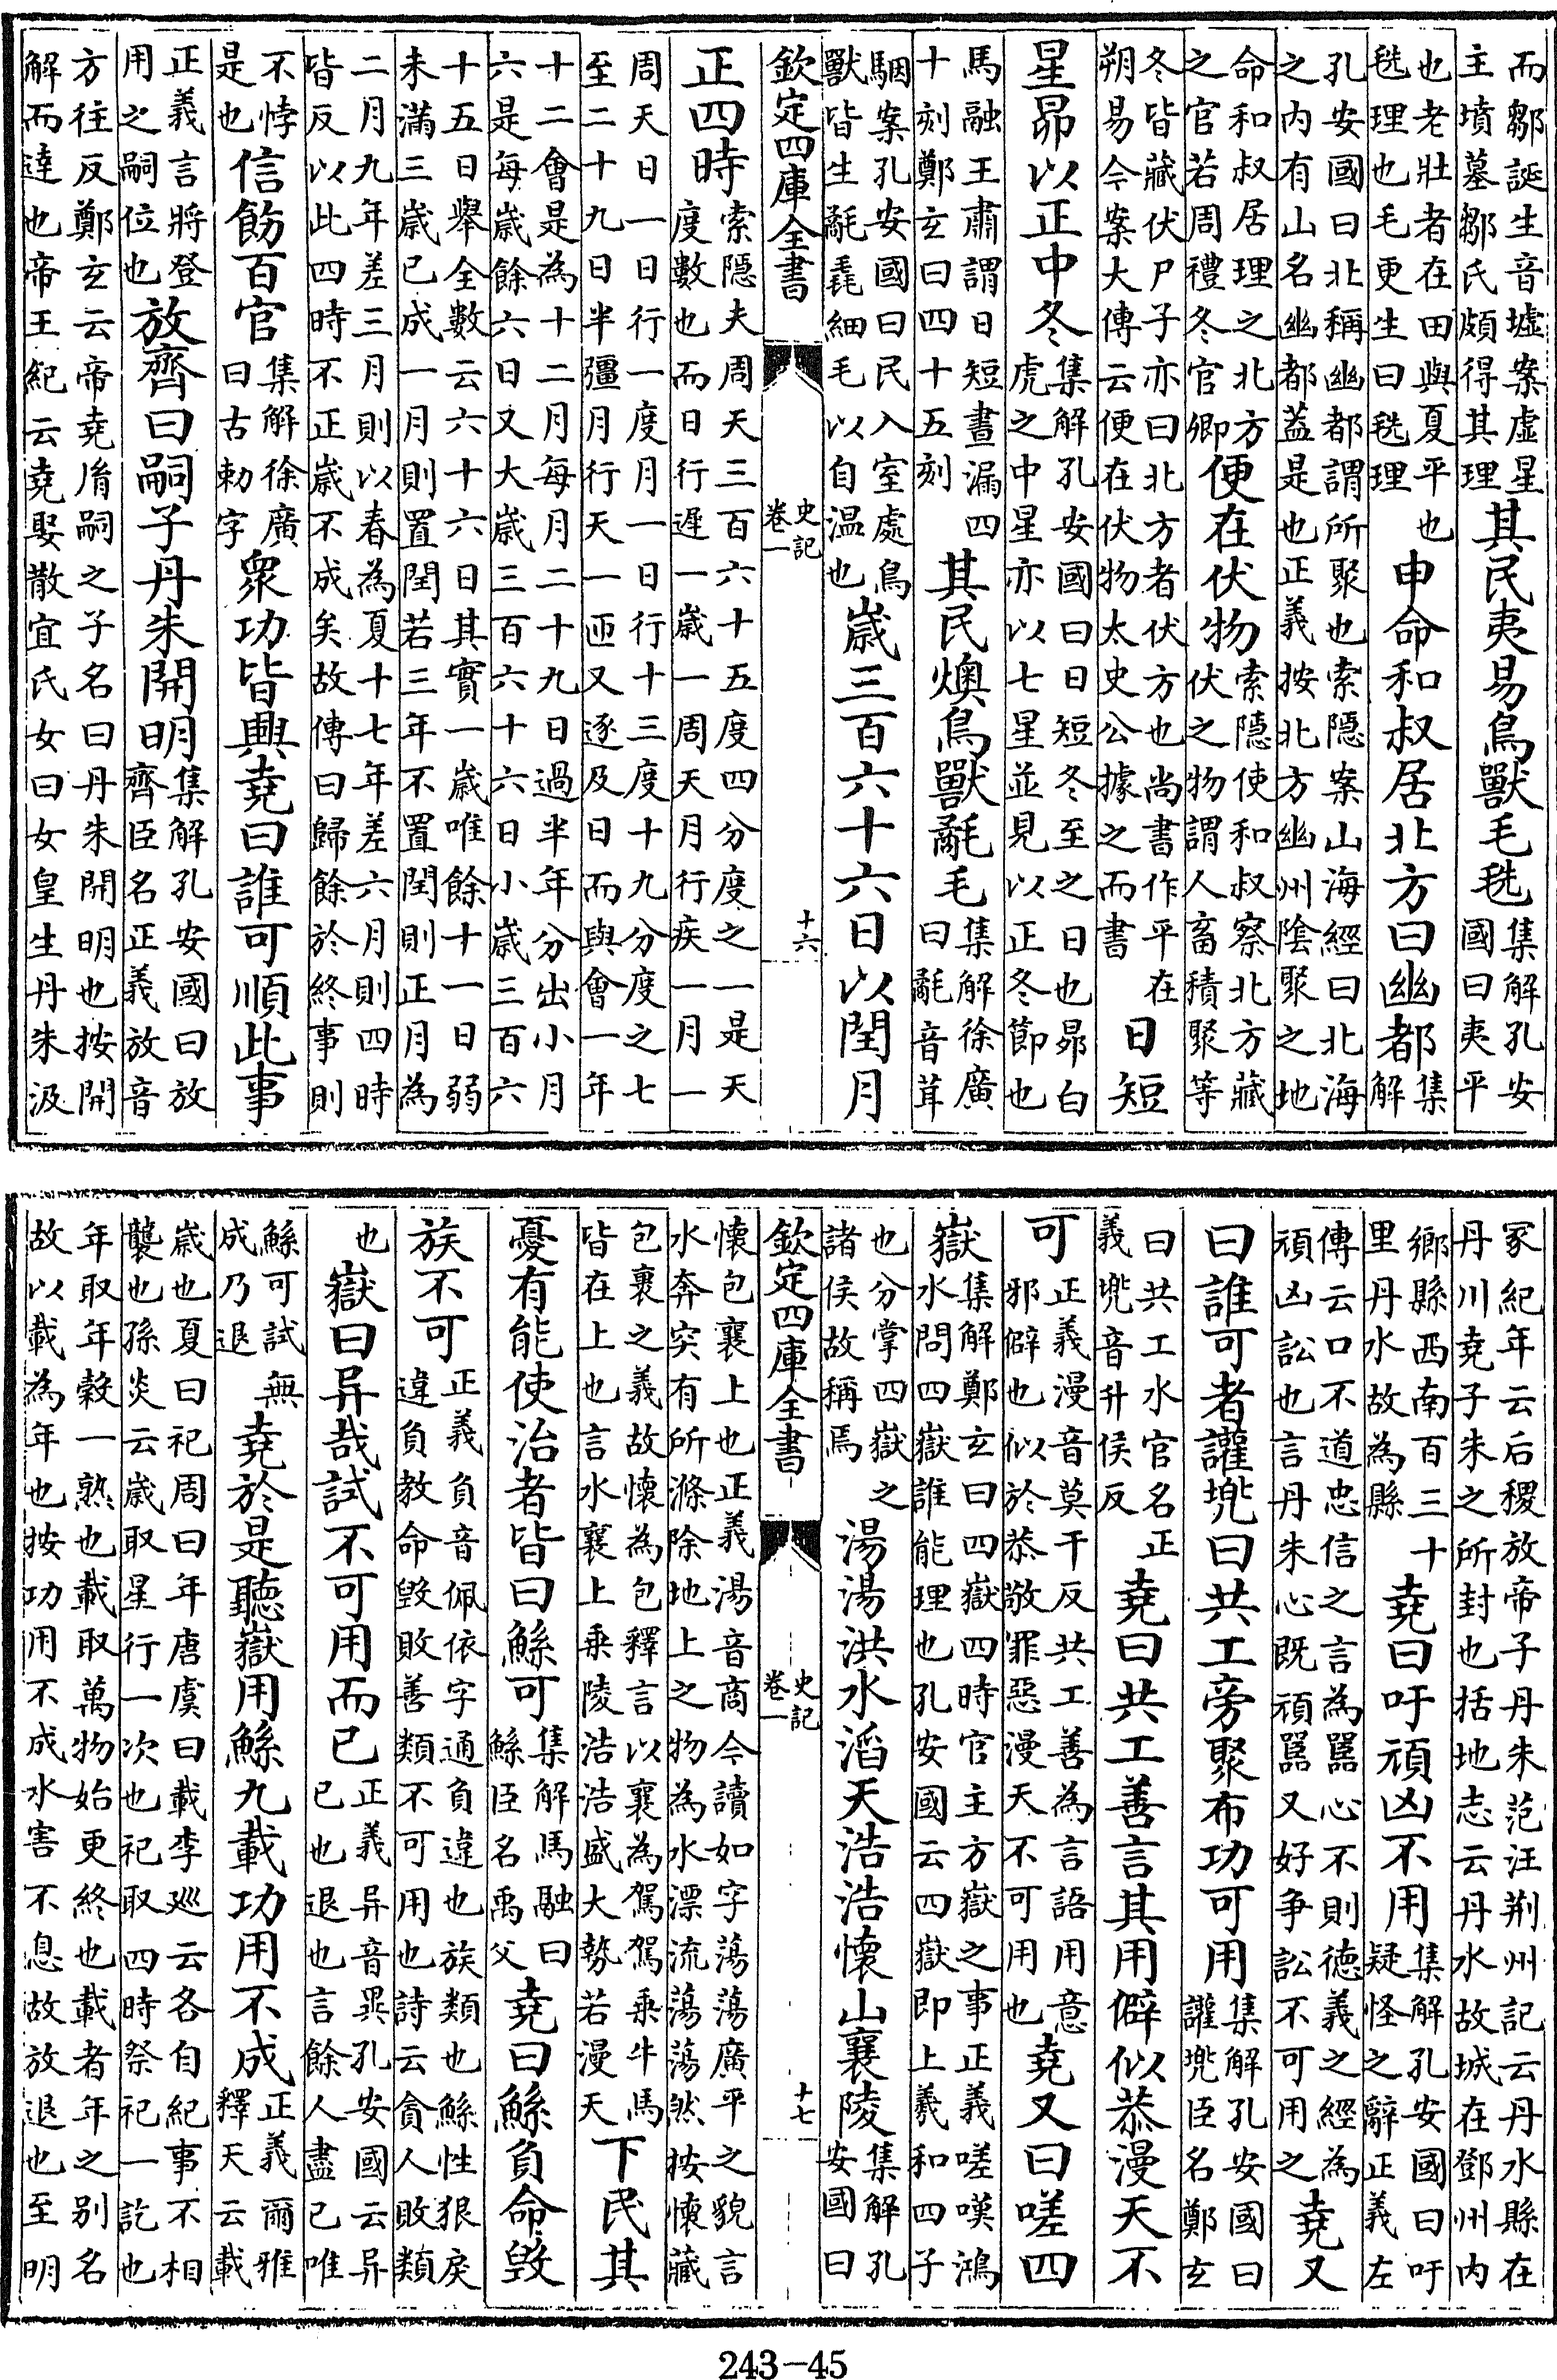 而鄒誕生音墟案虛星主墳墓鄒氏頗得其理其民夷易鳥獸毛毨集解孔安國曰夷平
也老壯者在田與夏平也毨理也毛更生曰毨理申命和叔居北方曰幽都集解
孔安國曰北稱幽都謂所聚也索隱案山海經曰北海之內有山名幽都蓋是也正義按北方幽州陰聚之地
命和叔居理之北方之官若周禮冬官卿便在伏物索隱使和叔察北方藏伏之物謂人畜積聚等
冬皆藏伏尸子亦曰北方者伏方也尚書作平在朔易今案大傳云便在伏物太史公據之而書日短
星昴以正中冬集解孔安國曰日短冬至之日也昴白虎之中星亦以七星並見以正冬節也
馬融王肅謂日短晝漏四十刻鄭玄曰四十五刻其民燠鳥獸氄毛集解徐廣曰氄音茸
駰案孔安國曰民入室處鳥獸皆生氄毳細毛以自溫也歲三百六十六日以閏月
欽定四庫全書 史記卷一 十六
正四時索隱夫周天三百六十五度四分度之一是天度數也而日行遲一歲一周天月行疾一月一
周天日一日行一度月一日行十三度十九分度之七至二十九日半彊月行天一匝又逐及日而與會一年
十二會是為十二月每月二十九日過半年分出小月六是每歲餘六日又大歲三百六十六日小歲三百六
十五日舉全數云六十六日其實一歲唯餘十一日弱未滿三歲已成一月則置閏若三年不置閏則正月為
二月九年差三月則以春為夏十七年差六月則四時皆反以此四時不正歲不成矣故傳曰歸餘於終事則
不悖是也信飭百官集解徐廣曰古勑字衆功皆興堯曰誰可順此事
正義言將登用之嗣位也放齊曰嗣子丹朱開明集解孔安國曰放齊臣名正義放音
方往反鄭玄云帝堯胤嗣之子名曰丹朱開明也按開解而達也帝王紀云堯娶散宜氏女曰女皇生丹朱汲
冢紀年云后稷放帝子丹朱范汪荆州記云丹水縣在丹川堯子朱之所封也括地志云丹水故城在鄧州內
鄉縣西南百三十里丹水故為縣堯曰吁頑凶不用集解孔安國曰吁疑怪之辭正義左
傳云口不道忠信之言為嚚心不則德義之經為頑凶訟也言丹朱心既頑嚚又好爭訟不可用之堯又
曰誰可者讙兠曰共工旁聚布功可用集解孔安國曰讙兠臣名鄭玄
曰共工水官名正義兠音斗侯反堯曰共工善言其用僻似恭漫天不
可正義漫音莫干反共工善為言語用意邪僻也似於恭敬罪惡漫天不可用也堯又曰嗟四
嶽集解鄭玄曰四嶽四時官主方嶽之事正義嗟嘆鴻水問四嶽誰能理也孔安國云四嶽即上羲和四子
也分掌四嶽之諸侯故稱焉湯湯洪水滔天浩浩懷山襄陵集解孔安國曰
欽定四庫全書 史記卷一 十七
懷包襄上也正義湯音商今讀如字蕩蕩廣平之貌言水奔突有所滌除地上之物為水漂流蕩蕩然按懷藏
包裹之義故懷為包釋言以襄為駕駕乘牛馬皆在上也言水襄上乘陵浩浩盛大勢若漫天下民其
憂有能使治者皆曰鯀可集解馬融曰鯀臣名禹父堯曰鯀負命毀
族不可正義負音佩依字通負違也族類也鯀性狠戾違負教命毀敗善類不可用也詩云貪人敗類
也嶽曰异哉試不可用而已正義异音異孔安國云异已也退也言餘人盡已唯
鯀可試無成乃退堯於是聽嶽用鯀九載功用不成正義爾雅釋天云載
歲也夏曰祀周曰年唐虞曰載李巡云各自紀事不相襲也孫炎云歲取星行一次也祀取四時祭祀一訖也
年取年穀一熟也載取萬物始更終也載者年之别名故以載為年也按功用不成水害不息故放退也至明
243-45